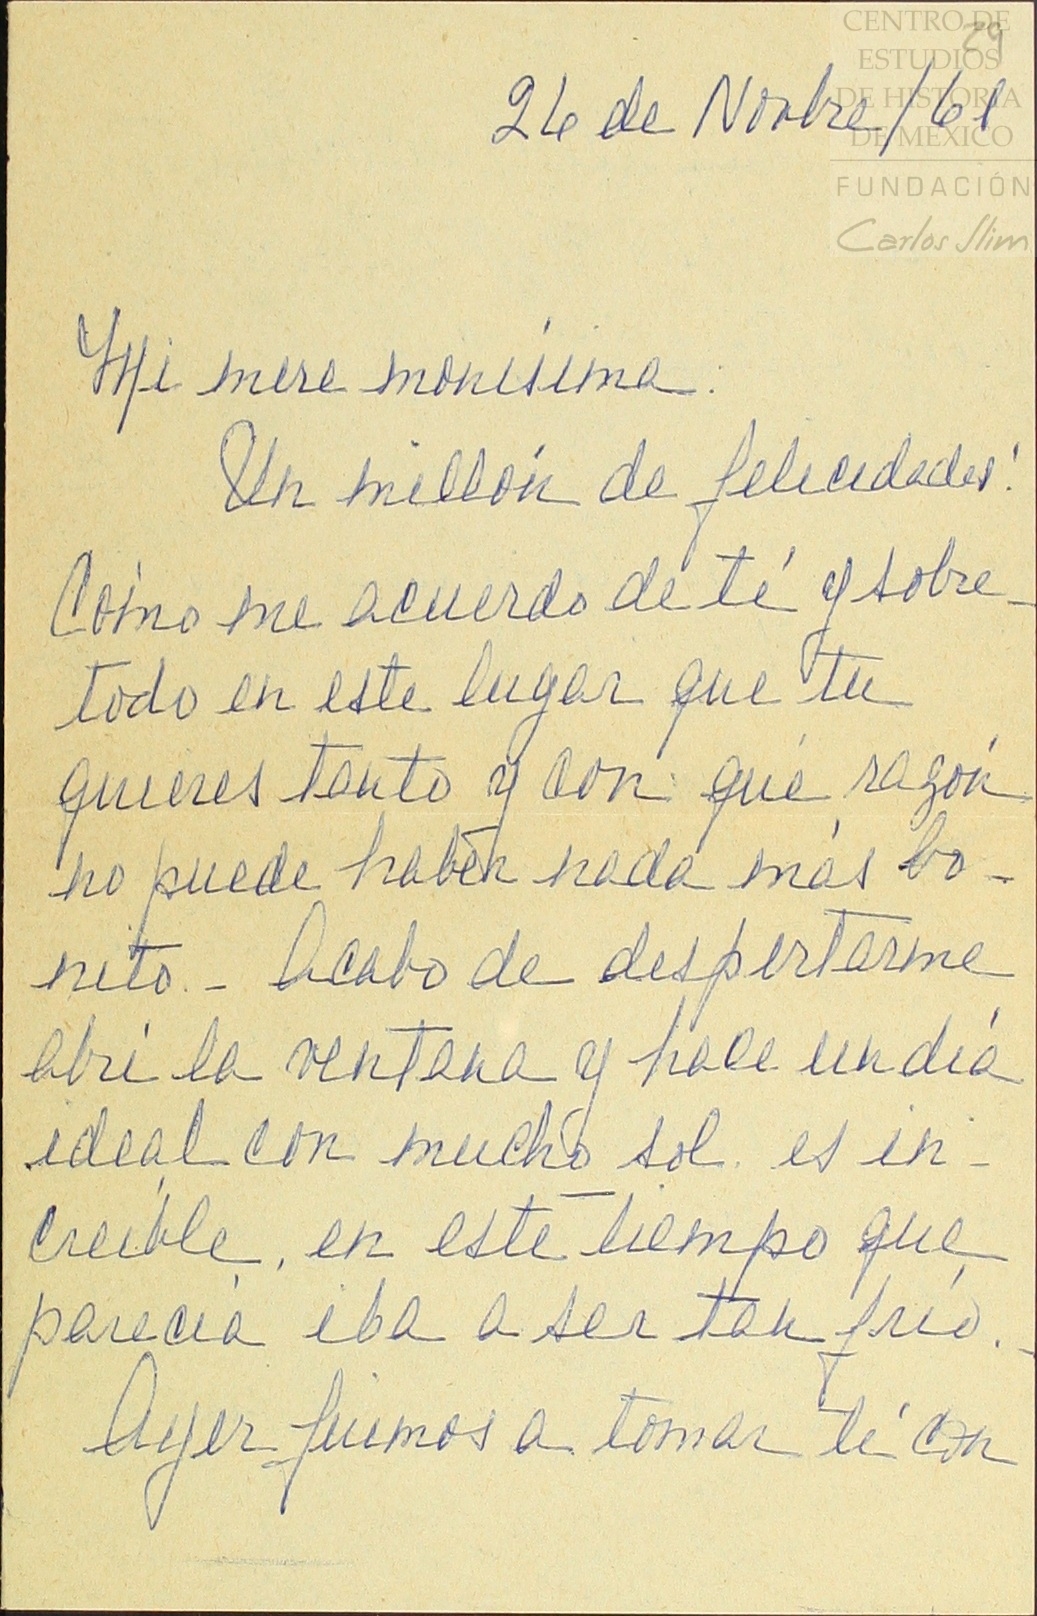 CENTRO DE
ESTUDIOS
DE HISTORIA
DE MÉXICO
FUNDACIÓN
Carlos Slim
29
26 de Novbre/61
Mi mere monísima:
Un millón de felicidades!
Cómo me acuerdo de té y sobre-
todo en este lugar que tu
quieres tanto y con qué razón
no puede haber nada más bo-
nito.- Acabo de despertarme
abrí la ventana y hace un día
ideal con mucho sol. es in-
creíble, en este tiempo que
parecía iba a ser tan frío.-
Ayer fuimos a tomar té con